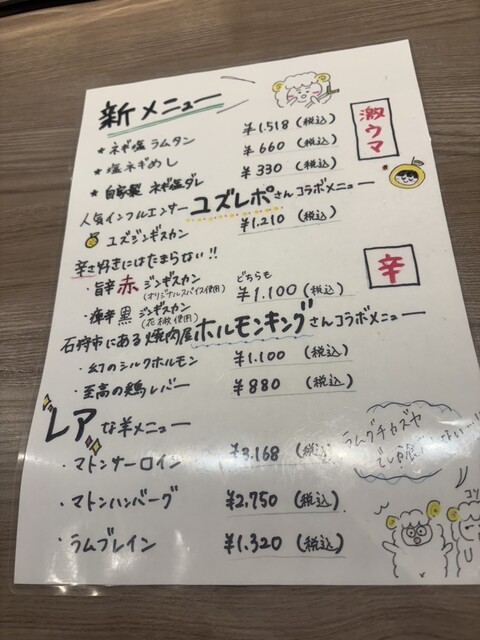 新メニュー
激ウマ
★ ネギ塩 ラムタン ¥1.518 (税込)
★ 塩ネギめし ¥660 (税込)
★ 自家製 ネギ塩ダレ ¥330 (税込)
人気インフルエンサー ユズレポさんコラボメニュー
ユズジンギスカン ¥1.210 (税込)
辛さ好きにはたまらない!!
辛
・旨辛 赤 ジンギスカン どちらも
(オリジナルスパイス使用) ¥1.100 (税込)
・痺辛 黒 ジンギスカン
(花椒使用)
石狩市にある焼肉屋ホルモンキングさんコラボメニュー
・幻のシルクホルモン ¥1.100 (税込)
・至高の鶏レバー ¥880 (税込)
レアな羊メニュー
・マトンサーロイン ¥3,168 (税込)
・マトンハンバーグ ¥2,750 (税込)
・ラムブレイン ¥1.320 (税込)
ラムグチカズヤ